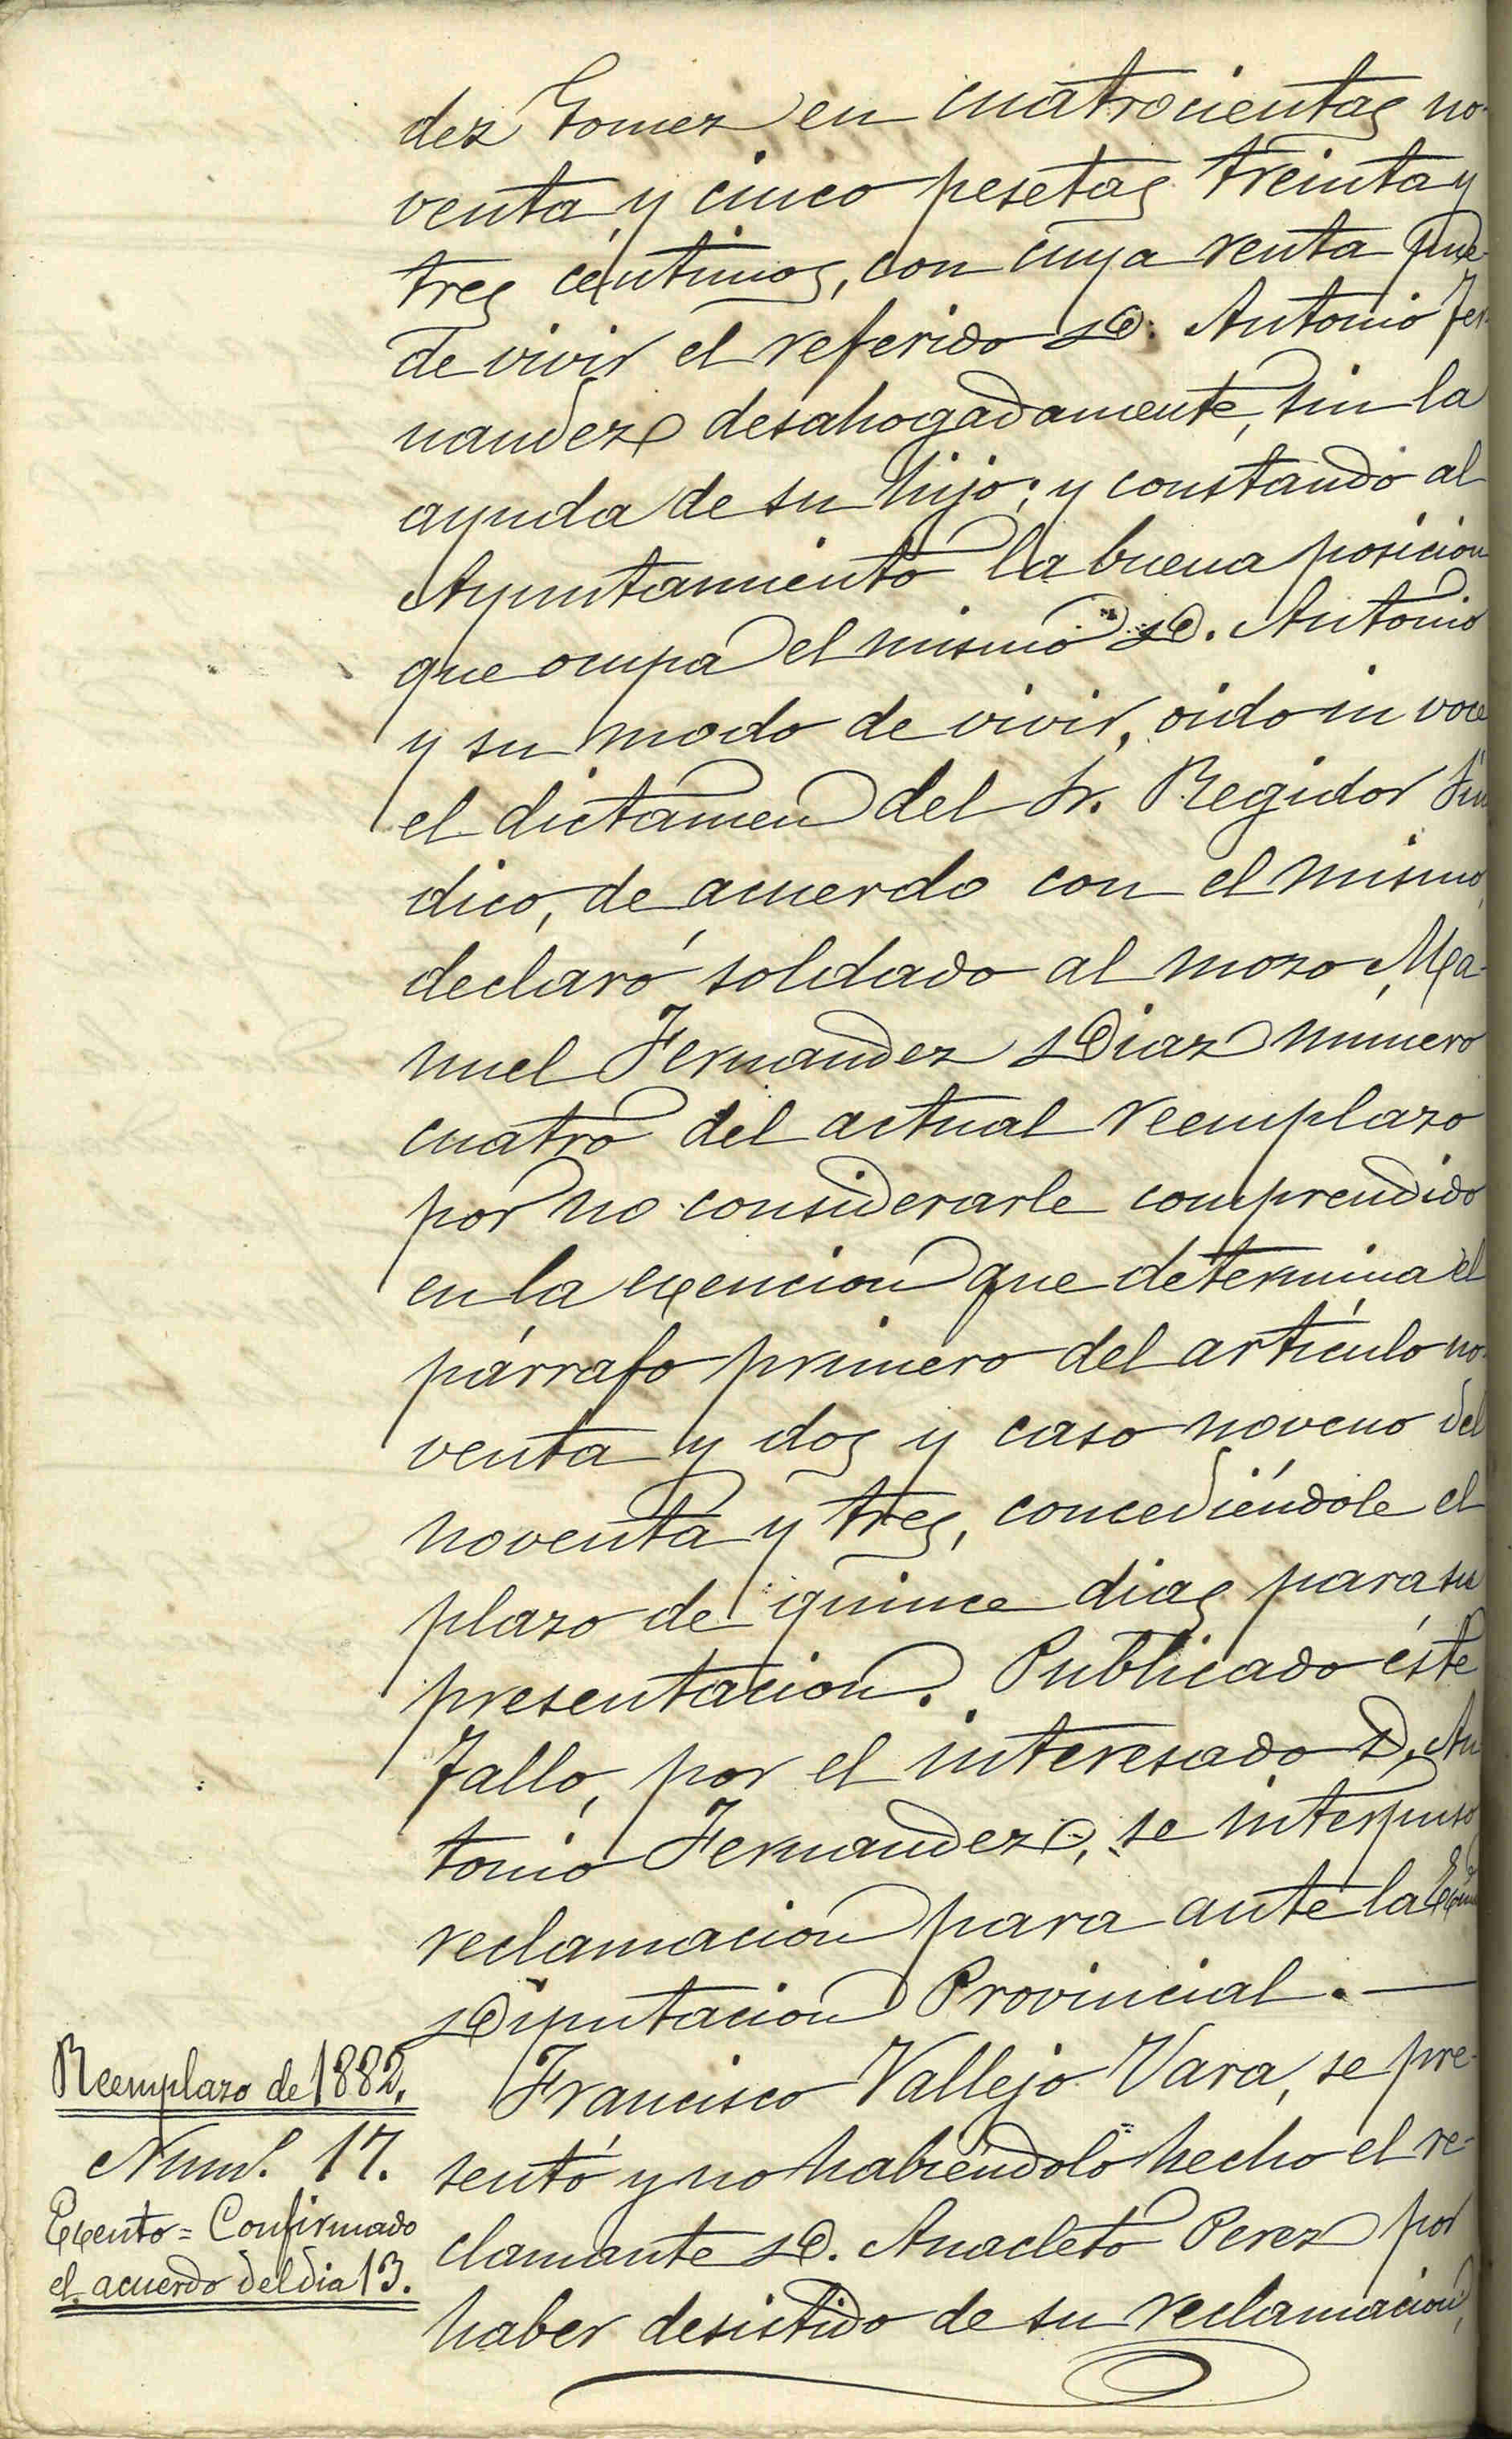 dez Gomez en cuatrocientas no-
venta y cinco pesetas treinta y
tres céntimos, con cuya renta pue-
de vivir el referido D. Antonio Fer-
nandez desahogadamente, sin la
ayuda de su hijo; y constando al
Ayuntamiento la buena posicion
que ocupa el mismo D. Antonio
y su modo de vivir, oido in voce
el dictamen del Sr. Regidor Sin
dico, de acuerdo con el mismo,
declaró soldado al mozo Ma-
nuel Fernandez Diaz numero
cuatro del actual reemplazo
por no considerarle comprendido
en la exencion que determina el
párrafo primero del artículo no-
venta y dos y caso noveno del
noventa y tres, concediéndole el
plazo de quince dias para su
presentacion. Publicado éste
fallo, por el interesado D. An
tonio Fernandez, se interpuso
reclamacion para ante la Exma
Diputacion Provincial. —
Reemplazo de 1882.
Num. 17.
Exento = Confirmado
el acuerdo del dia 13.
Francisco Vallejo Vara, se pre-
sentó y no habiéndolo hecho el re-
clamante D. Anacleto Perez por
haber desistido de su reclamacion,